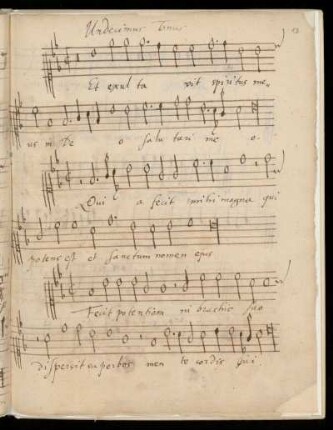 Undecimus Tonus 13
Et exulta vit spiritus me,,
us in De o salu tari me o.
Qui a fecit mihi magna qui
potens est et sanctum nomen ejus
Fecit potentiam in brachio suo
dispersit superbos men te cordis sui.